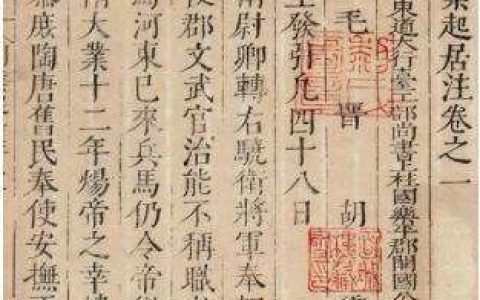 業起居注卷之一
東道大行臺工部尚書上柱國樂平郡開國公
毛晉 胡
發引凡四十八日
尉卿轉右驍衛將軍奉
使郡文武官治能不稱職
焉河東已來兵馬仍令帝
隋大業十二年煬帝之幸樓
庶陶唐舊民奉使安撫不